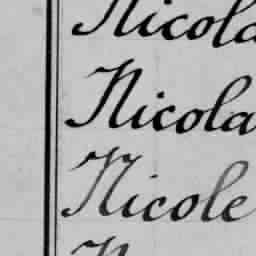 Nicola
Nicola
Nicole